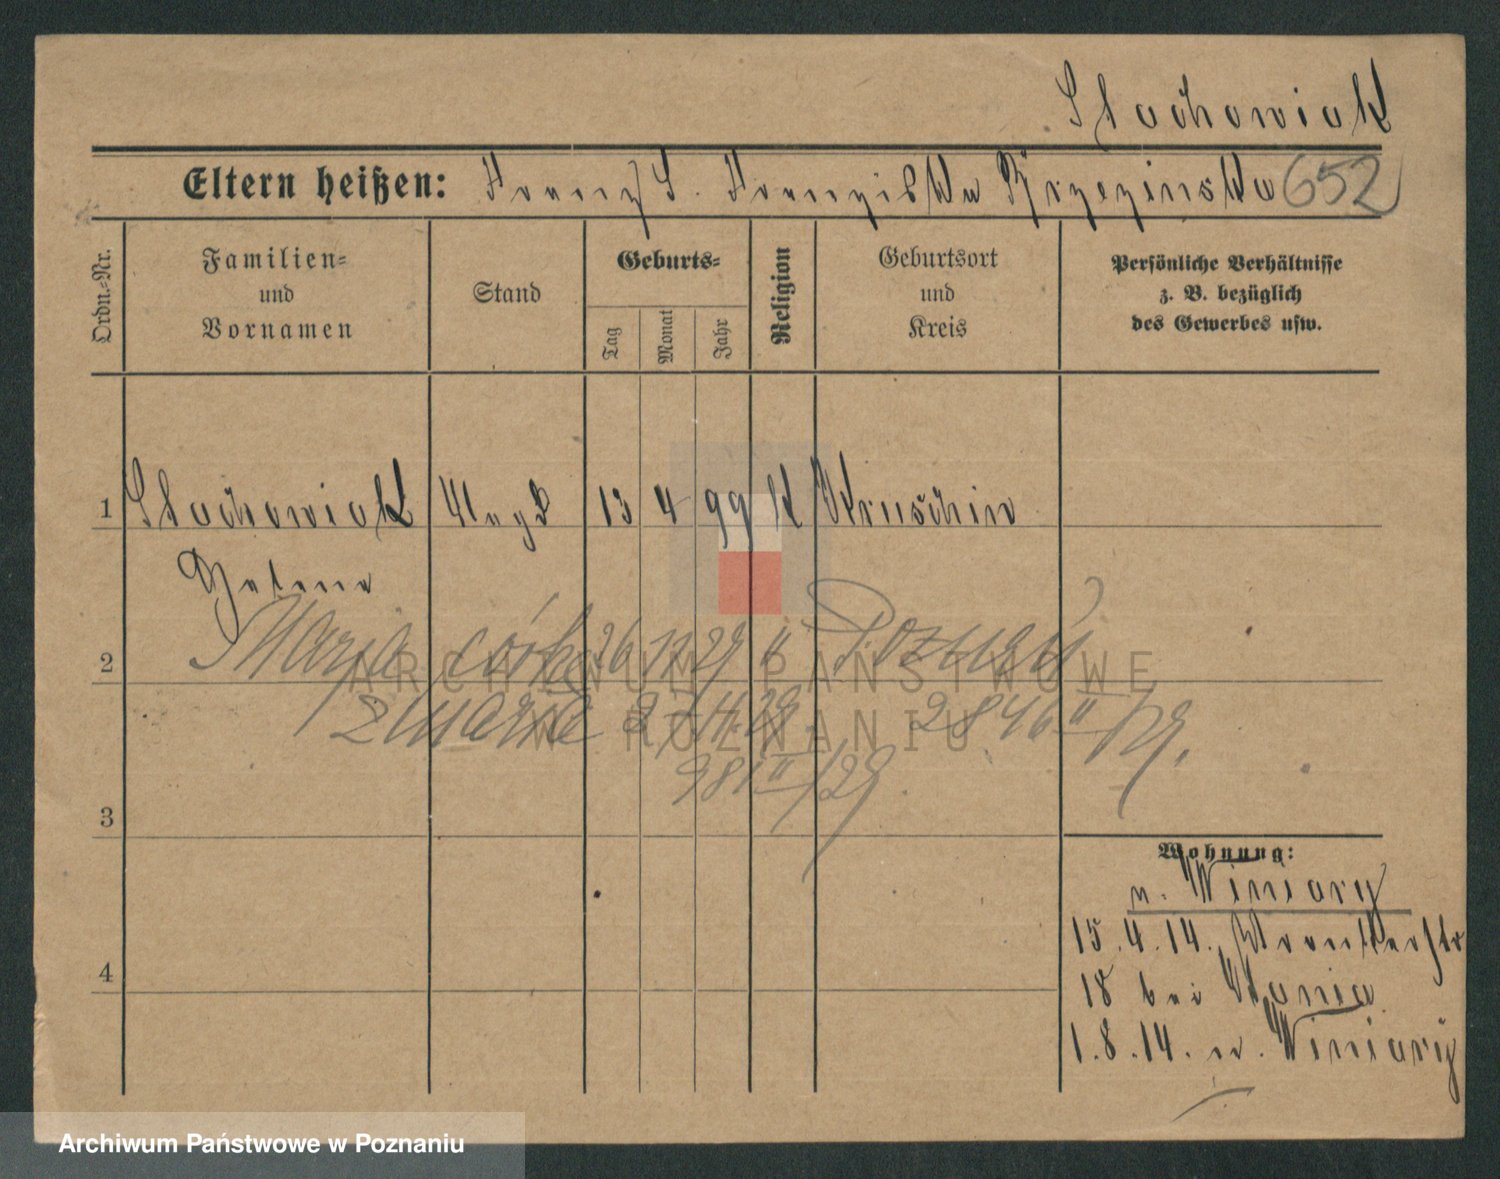 Stachowiak
Eltern heißen: Franz S. Franziska Krzezinska 652
Ordn.-Nr.
Familien-
und
Vornamen
Stand
Geburts-
Tag
Monat
Jahr
Religion
Geburtsort
und
Kreis
Persönliche Verhältnisse
z. B. bezüglich
des Gewerbes usw.
1 Stachowiak Magd 13 4 99 K Kruschin
Helene
2 Marja córka 26 11 29 " Poznań
ARCHIWUM PAŃSTWOWE
W POZNANIU
zmarła 2846 II/29.
981 II/29.
3
Wohnung:
n. Winiary
15.4.14. Wronkerstr
4
18 bei Kania
1.8.14. n. Winiary
Archiwum Państwowe w Poznaniu